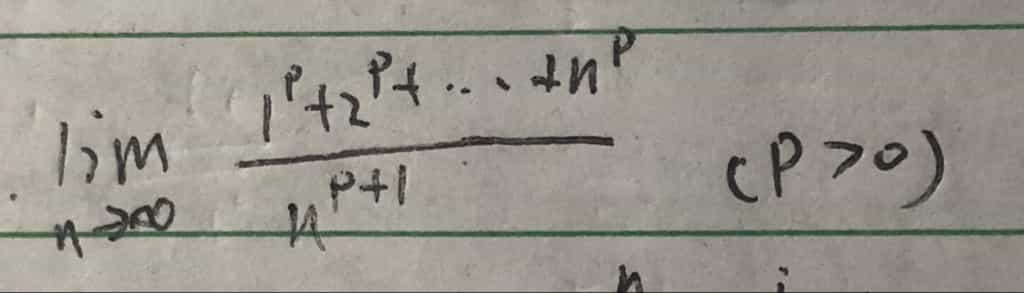 lim n→∞ (1^p+2^p+...+n^p)/(n^(p+1)) (p>0)
n i